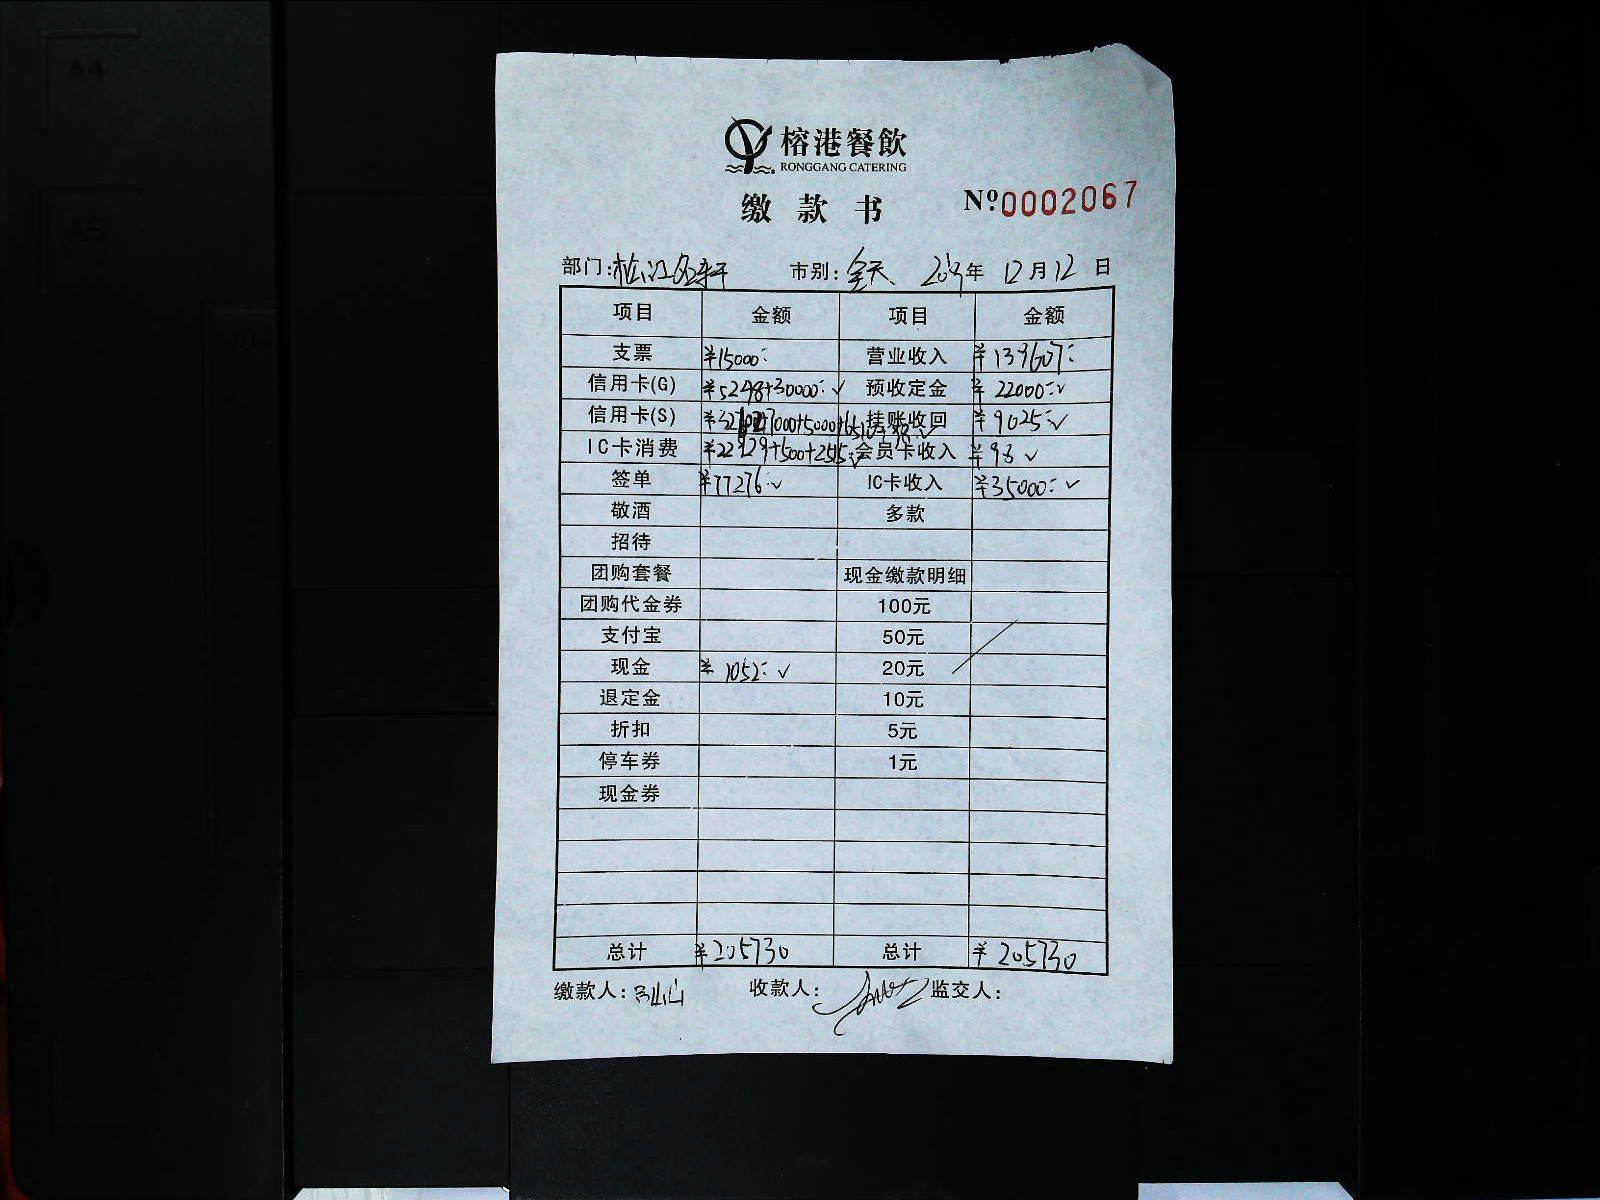 A4
A5
榕港餐飲
RONGGANG CATERING
缴款书 №0002067
部门:松江名轩 市别:全天 2019年 12月12日
项目 金额 项目 金额
支票 ¥15000: 营业收入 ¥139607:
信用卡(G) ¥5298+30000:✓ 预收定金 ¥22000:✓
信用卡(S) 挂账收回 ¥9025:✓
IC卡消费 ¥22929+500+2515✓ 会员卡收入 ¥98✓
签单 ¥77276:✓ IC卡收入 ¥35000:✓
敬酒 多款
招待
团购套餐 现金缴款明细
团购代金券 100元
支付宝 50元
现金 ¥1052:✓ 20元
退定金 10元
折扣 5元
停车券 1元
现金券
总计 ¥205730 总计 ¥205730
缴款人: 收款人: 监交人: